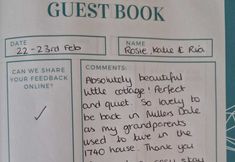 GUEST BOOK
DATE
22 - 23rd Feb
NAME
Rosie, Katie & Ria
CAN WE SHARE
YOUR FEEDBACK
ONLINE?
✓
COMMENTS:
Absolutely beautiful
little cottage! Perfect
and quiet. So lovely to
be back in Millers Dale
as my grandparents
used to live in the
1740 house. Thank you